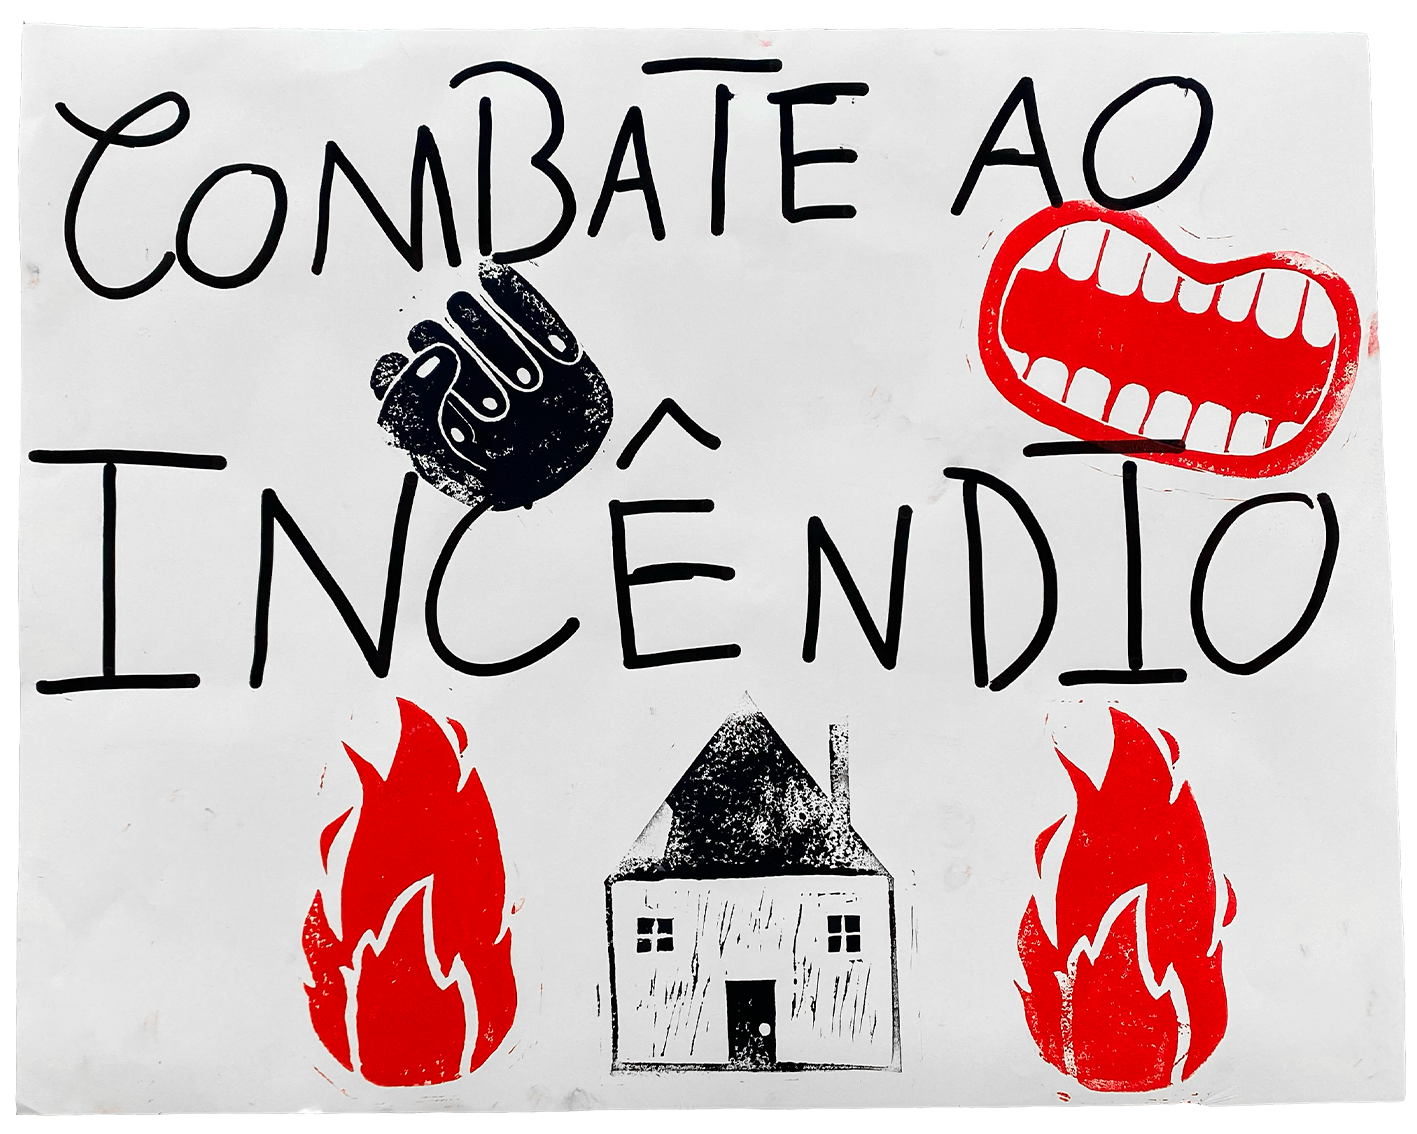 COMBATE AO
INCÊNDIO